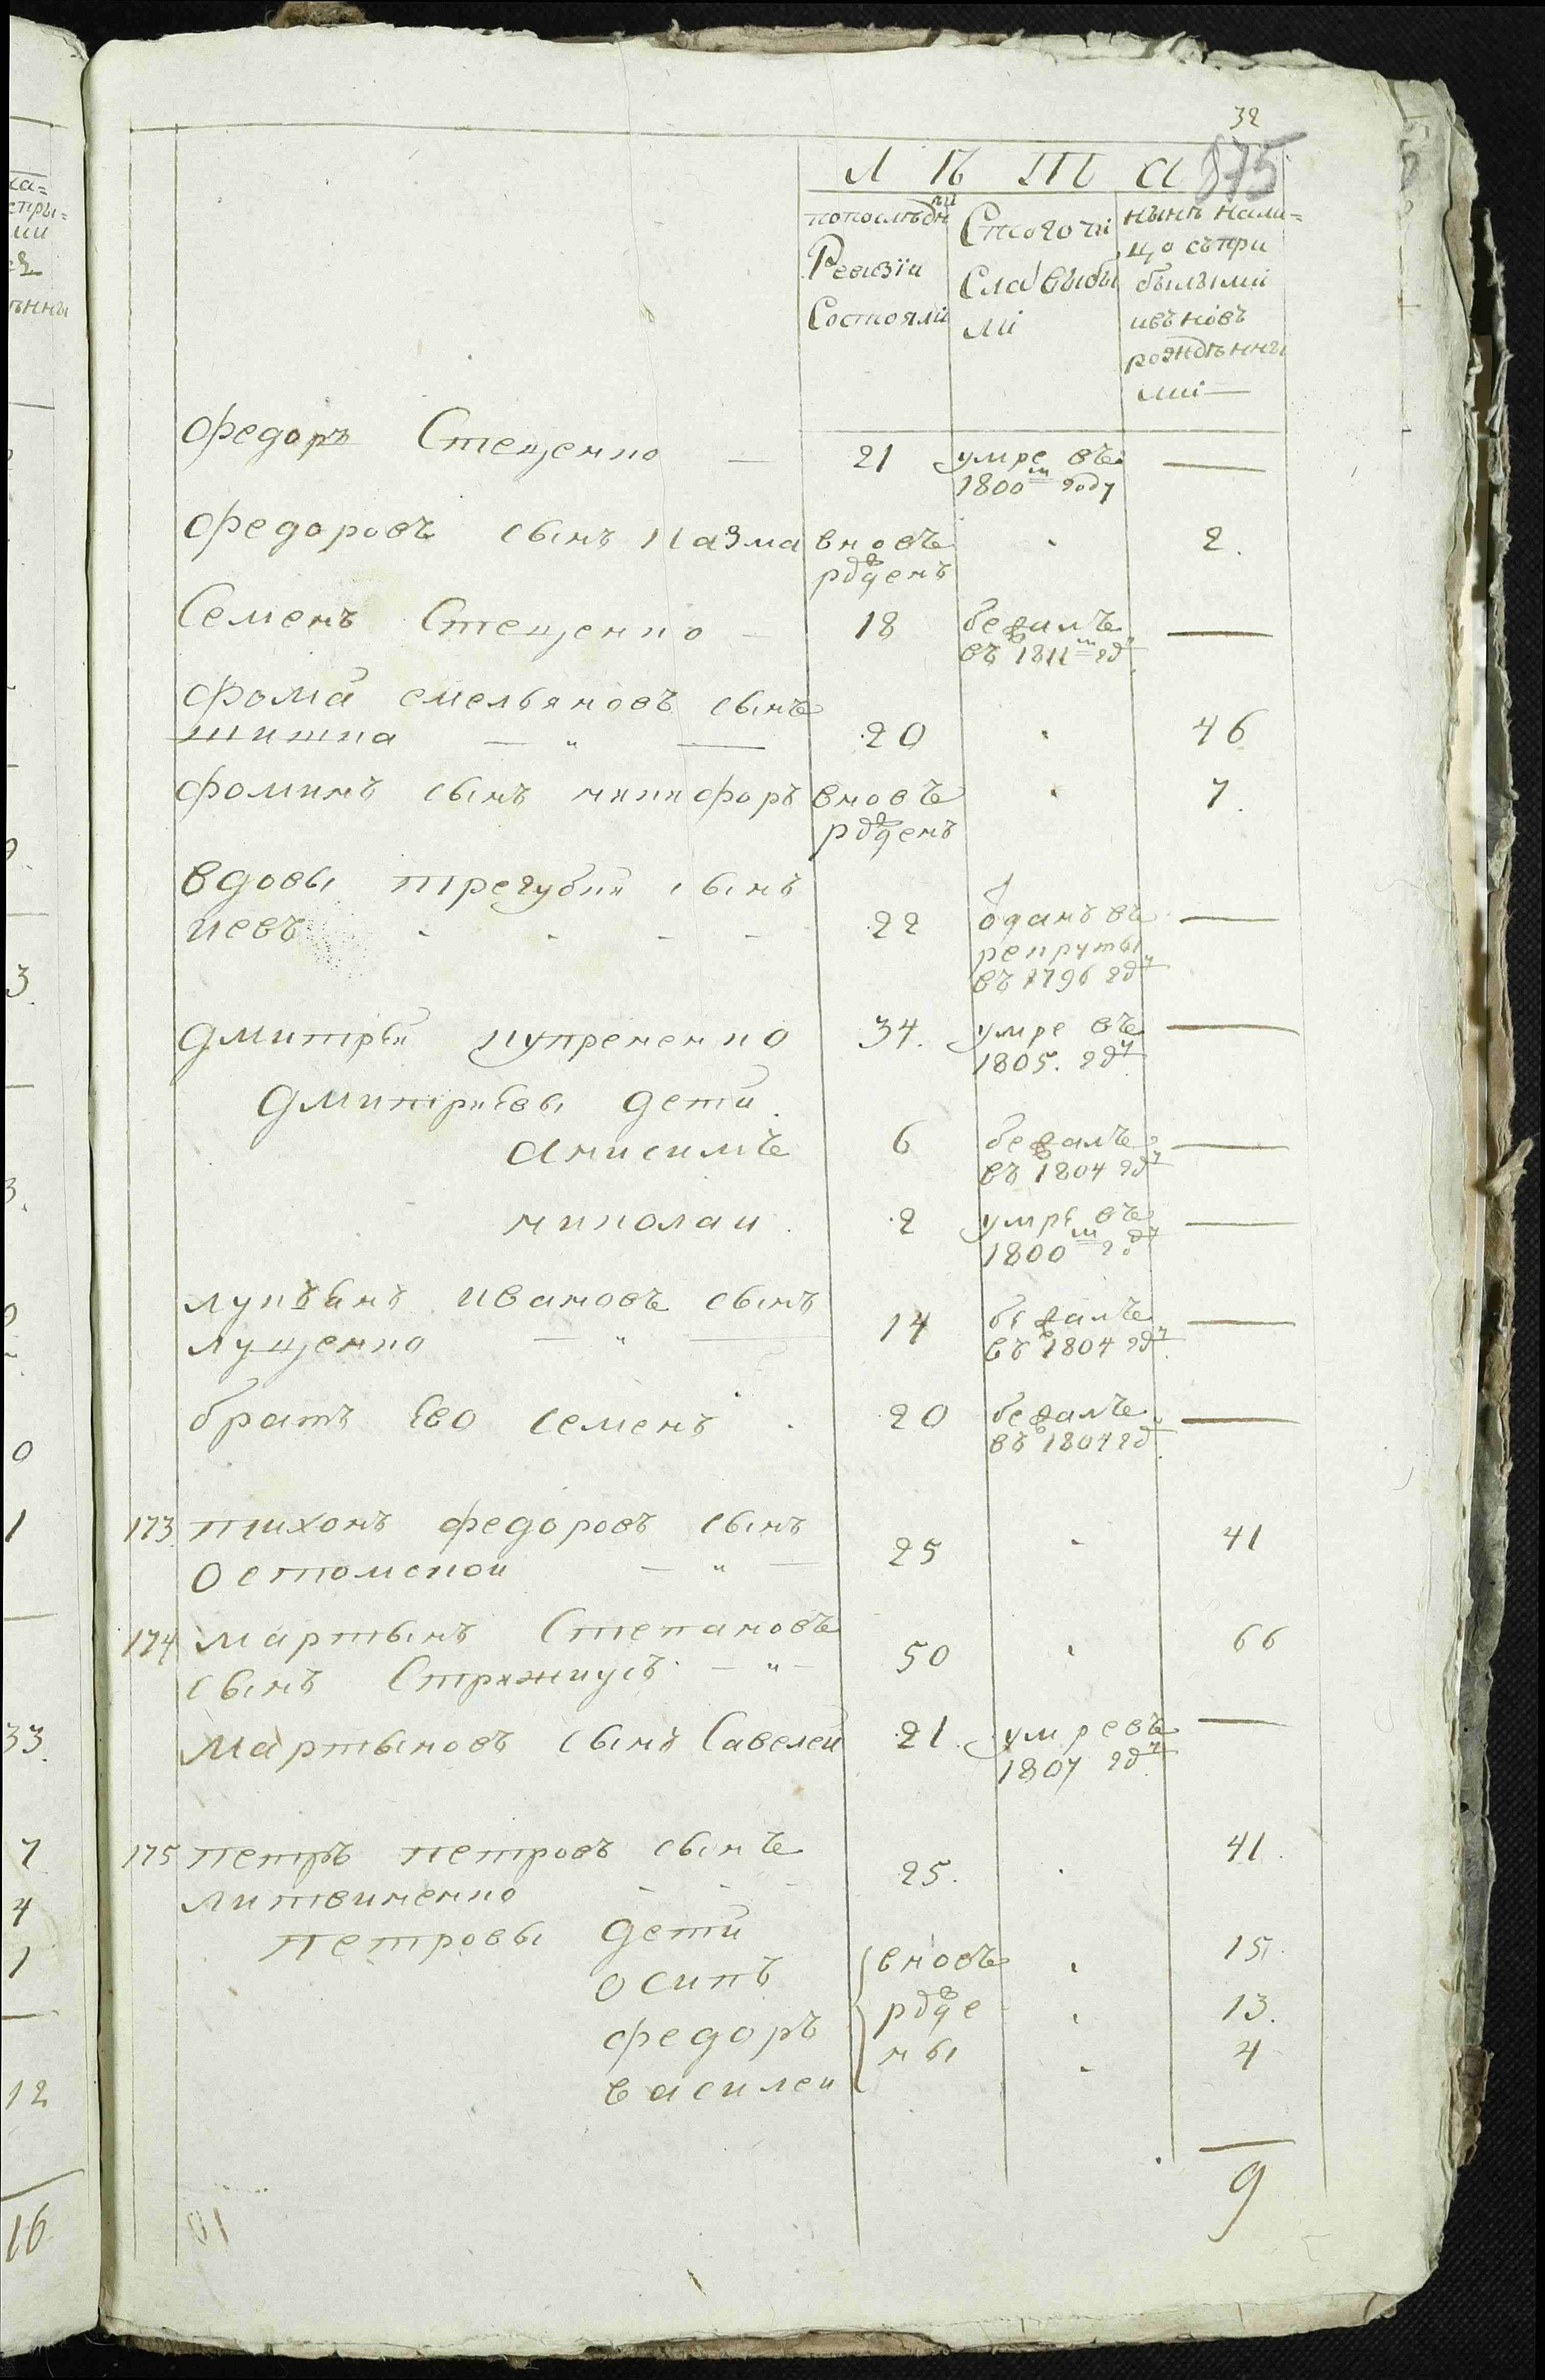 32
875
ЛѢТА
попослѣдн ѣи
Ревизіи
Состояли
Стого чи
Сла выбы
ли
нынѣ нали=
цо съпри
былыми
ивъновъ
рожденны
ми —
Федоръ Стеценко — 21 умре въ —
1800 м году
Федоровъ сынъ Казма вновъ 2.
рожденъ
Семенъ Стеценко — 18 бежалъ —
въ 1811 м году
Фома емельяновъ сынъ
шишка — „ — 20 46
Фоминъ сынъ никифоръ вновъ 7.
рожденъ
вдовы трегубии сынъ
иевъ - - - - 22 отданъ въ —
рекруты
въ 1796 году
Дмитрьи купрененко 34. умре въ —
1805. году
Дмитриевы дети.
Анисимъ 6 бежалъ —
въ 1804 году
николаи. 2 умре въ —
1800 м году
лукъянъ ивановъ сынъ
луценко — „ — 14 бежалъ —
въ 1804 году
братъ Ево семенъ . 20 бежалъ —
въ 1804 году
173 тихонъ федоровъ сынъ
Остомской — „ — 25 41
174 мартынъ Степановъ
сынъ Стрижкусъ — „ — 50 66
Мартыновъ сынъ Савелей 21. умре въ —
1807 году
175 петръ петровъ сынъ
литвиненко - - - 25. 41.
петровы дети
осипъ вновъ 15.
федоръ рожде 13.
василеи ны 4
9